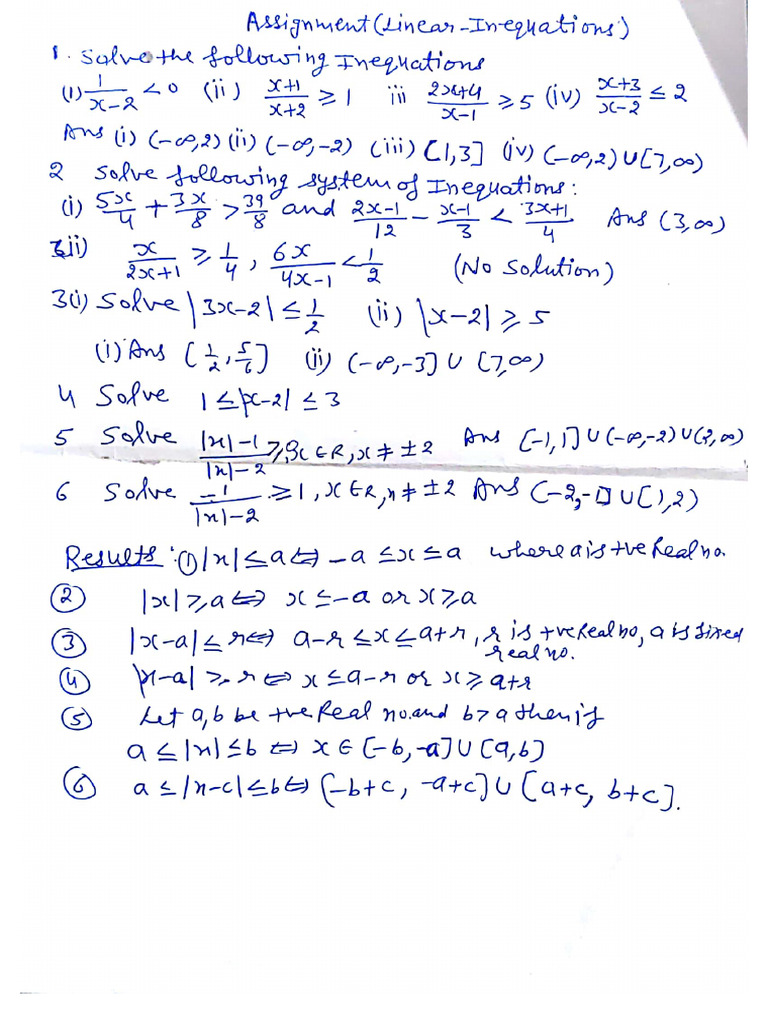 Assignment (Linear-Inequations)
1. Solve the following Inequations
(i) 1/(x-2) < 0 (ii) (x+1)/(x+2) ≥ 1 iii (2x+4)/(x-1) ≥ 5 (iv) (x+3)/(x-2) ≤ 2
Ans (i) (-∞,2) (ii) (-∞,-2) (iii) (1,3] (iv) (-∞,2)∪[7,∞)
2 Solve following system of Inequations:
(i) 5x/4 + 3x/8 > 39/8 and (2x-1)/12 - (x-1)/3 < (3x+1)/4 Ans (3,∞)
ii) x/(2x+1) ≥ 1/4, 6x/(4x-1) < 1/2 (No Solution)
3(i) Solve |3x-2| ≤ 1/2 (ii) |x-2| ≥ 5
(i) Ans [1/2, 5/6] (ii) (-∞,-3] ∪ [7,∞)
4 Solve 1 ≤ |x-2| ≤ 3
5 Solve (|x|-1)/(|x|-2) ≥, x∈R, x ≠ ±2 Ans [-1,1]∪(-∞,-2)∪(2,∞)
6 Solve -1/(|x|-2) ≥ 1, x∈R, x ≠ ±2 Ans (-2,-1]∪[1,2)
Results: ① |x| ≤ a ⇔ -a ≤ x ≤ a where a is +ve Real no.
② |x| ≥ a ⇔ x ≤ -a or x ≥ a
③ |x-a| ≤ r ⇔ a-r ≤ x ≤ a+r, r is +ve Real no, a is fixed
real no.
④ |x-a| ≥ r ⇔ x ≤ a-r or x ≥ a+r
⑤ Let a,b be +ve Real no. and b > a then if
a ≤ |x| ≤ b ⇔ x ∈ [-b,-a]∪[a,b]
⑥ a ≤ |x-c| ≤ b ⇔ [-b+c, -a+c] ∪ [a+c, b+c].